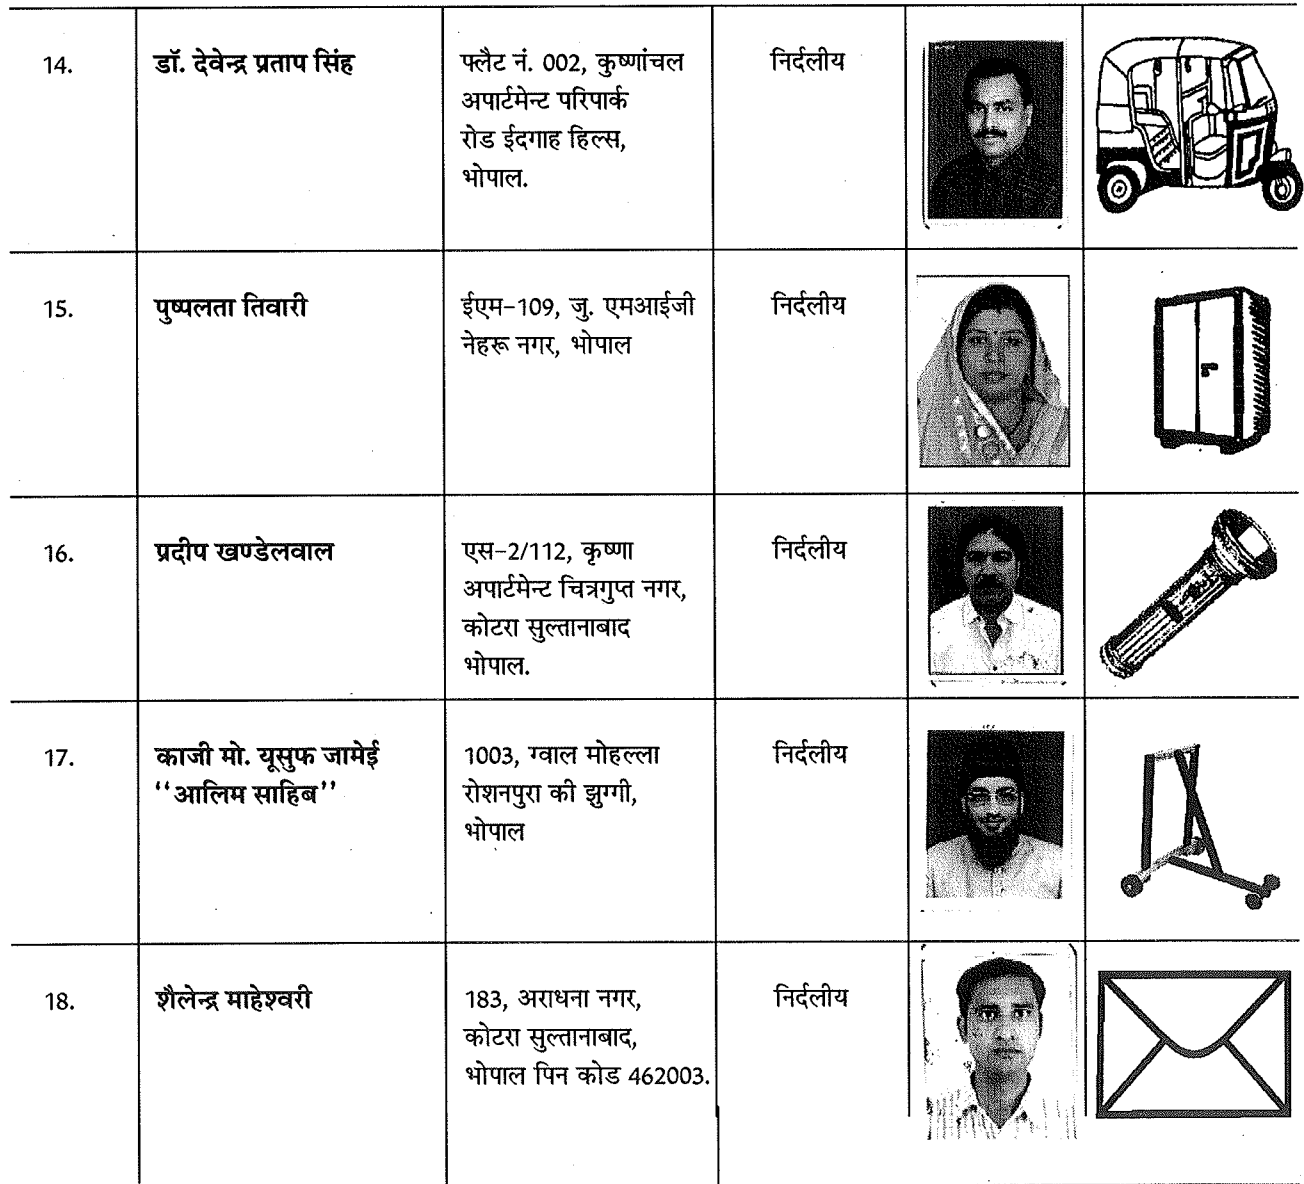 14.
डॉ. देवेन्द्र प्रताप सिंह
फ्लैट नं. 002, कुष्णांचल
अपार्टमेन्ट परिपार्क
रोड ईदगाह हिल्स,
भोपाल.
निर्दलीय
15.
पुष्पलता तिवारी
ईएम-109, जु. एमआईजी
नेहरू नगर, भोपाल
निर्दलीय
16.
प्रदीप खण्डेलवाल
एस-2/112, कृष्णा
अपार्टमेन्ट चित्रगुप्त नगर,
कोटरा सुल्तानाबाद
भोपाल.
निर्दलीय
17.
काजी मो. यूसुफ जामेई
‘‘आलिम साहिब’’
1003, ग्वाल मोहल्ला
रोशनपुरा की झुग्गी,
भोपाल
निर्दलीय
18.
शैलेन्द्र माहेश्वरी
183, अराधना नगर,
कोटरा सुल्तानाबाद,
भोपाल पिन कोड 462003.
निर्दलीय